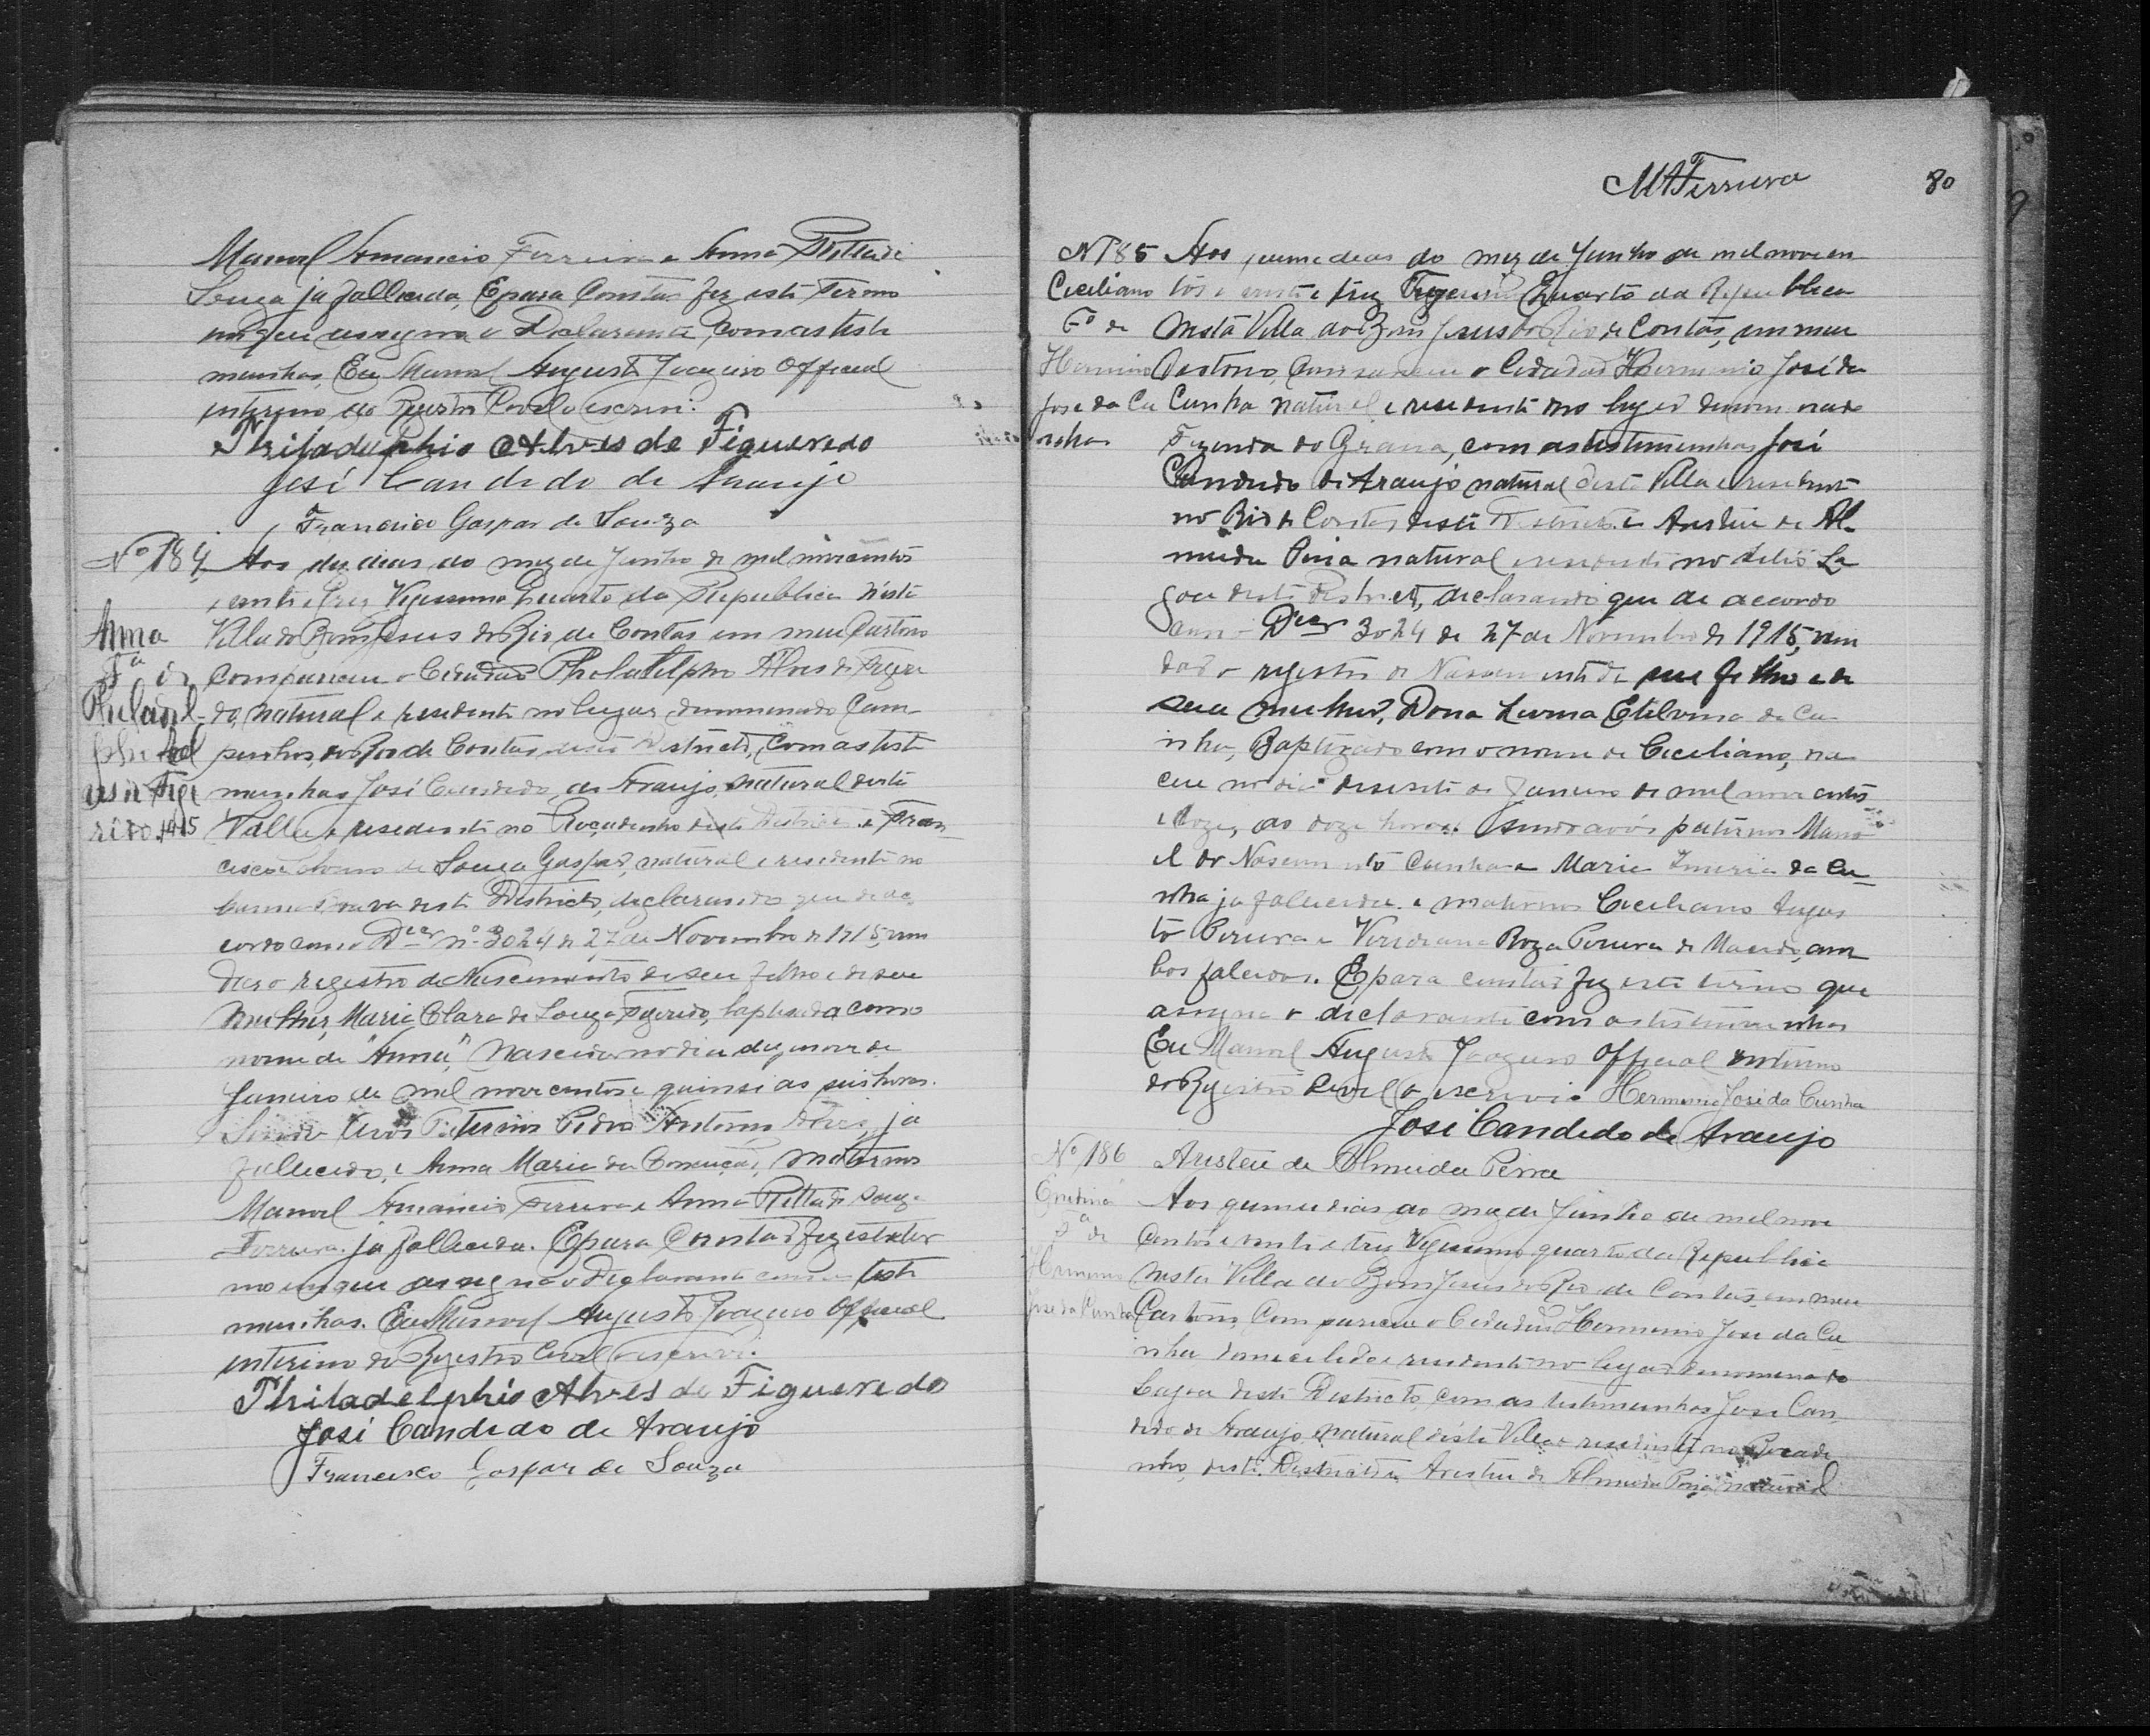 Manoel Amancio Ferreira e Anna Ritta de
Souza ja fallecida, E para Constar fez este termo
em que assigna o Declarante, com as teste
munhas, Eu Manoel Augusto Joazeiro Official
interino do Registro Civel o escrevi.
Philadelphio Alves de Figueredo
José Candido de Araujo
Francisco Gaspar de Souza
Nº 184
Anna
Fª de
Philadel-
phio Al
ves de Figue
redo 1915
Aos dez dias do mez de Junho de mil novecentos
e vinte e trez Vigessimo Quarto da Republica nésta
Villa do Bom Jesus do Rio de Contas em meu Cartorio
compareceu o Cidadão Philadelpho Alves de Figuere
do, natural e residente no lugar denominado Cam
pinhos, do Rio de Contas, deste Districto, com as teste
munhas José Candido de Araujo, natural desta
Villa e residente no Roçadinho deste Districto e Fran
cisco de Souza Gaspar, natural e residente no
deste Districto, declarando que de ac
cordo com o Decr nº 3024 de 27 de Novembro de 1915, vem
dar o registro de Nascimento de seu filho e de sua
mulher, Maria Clara de Souza Figueredo, baptisada com o
nome de "Anna", Nascida no dia dezenove de
Janeiro de mil novecentos e quinze as seis horas.
Sendo Avós Paternos Pedro Antonio Alves, ja
fallecido, e Anna Maria da Conceição, maternos
Manoel Amancio Ferreira e Anna Ritta de Souza
Ferreira ja fallecida. E para Constar fez este ter
mo em que assigna o Declarante com as teste
munhas. Eu Manoel Augusto Joazeiro Official
interino do Registro Civel o escrevi.
Philadelphio Alves de Figueredo
José Candido de Araujo
Francisco Gaspar de Souza
MAFerreira
80
N 185
Ceciliano
Fº de
Herminio
José da Cu
nha
Aos quinze dias do mez de Junho de mil novecen
tos e vinte e trez Vigessimo Quarto da Republica
nesta Villa do Bom Jesus do Rio de Contas, em meu
Cartorio, Compareceu o Cidadão Herminio José da
Cunha natural e residente no lugar denominado
Fazenda do Grama, com as testimunhas José
Candido de Araujo natural desta Villa e residente
no Rio de Contas, deste Districto e Aristeu de Al
meida Pina natural e residente no sitio La
goa deste Districto, declarando que de accordo
com o Decr 3024 de 27 de Novembro de 1915, vem
dar o registro de Nascimento de seu filho e de
sua mulher, Dona Etilvina da Cu
nha, Baptizado com o nome de Ceciliano, nas
ceu no dia desesete de Janeiro de mil nove centos
e doze, as doze horas. Sendo avós paternos Mano
el do Nascimento Cunha e Maria da Cu
nha ja fallecida. e maternos Ceciliano Augus
to Pereira e Viridiana Roza Pereira de Macedo, am
bos falecidos. E para constar fez este termo que
assigna o declarante com as testimunhas
Eu Manoel Augusto Joazeiro Official interino
do Registro Civel o escrevi. Herminio José da Cunha
José Candido de Araujo
Aristeu de Almeida Pina
Nº 186
Fª de
Herminio
José da Cunha
Aos quinze dias do mez de Junho de mil nove
centos e vinte e trez Vigessimo quarto da Republica
nesta Villa do Bom Jesus do Rio de Contas, em meu
Cartorio, Compareceu o Cidadão Herminio José da Cu
nha domeciliado e residente no lugar denominado
Lagoa deste Districto, com as testimunhas José Can
dido de Araujo, natural desta Villa e residente no Rocadi
nho, deste Districto e Aristeu de Almeida Pina natural